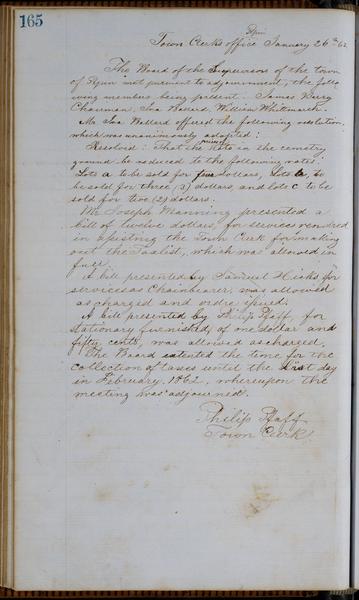 165
Pekin
Town Clerks office January 26th 62
The Board of the Supervisors of the town
of Pekin met pursuant to adjournment, the follo
wing members being present: James Haley
Chairman, Ira Ballard, William Whitmarch.
Mr Ira Ballard offered the following resolution,
which was unanimously adopted:
Resolved: That the lots in the cemetry
ground be reduced to the following rates:
Lots a to be sold for five dollars, Lots b, to
be sold for three (3) dollars, and lots c to be
sold for two (2) dollars;
Mr Joseph Manning presented a
bill of twelve dollars, for services rendred
in assisting the Town Clerk for making
out the Taxlist, which was allowed in
full.
A bill presented by Samuel Hicks for
services as Chainbearer, was allowed
as charged and ordre issued.
A bill presented by Philip Pfaff, for
stationary furnished, of one dollar and
fifty cents, was allowed as charged.
The Board extented the time for the
collection of taxes until the first day
in February, 1862, whereupon the
meeting was adjourned.
Philip Pfaff
Town Clerk